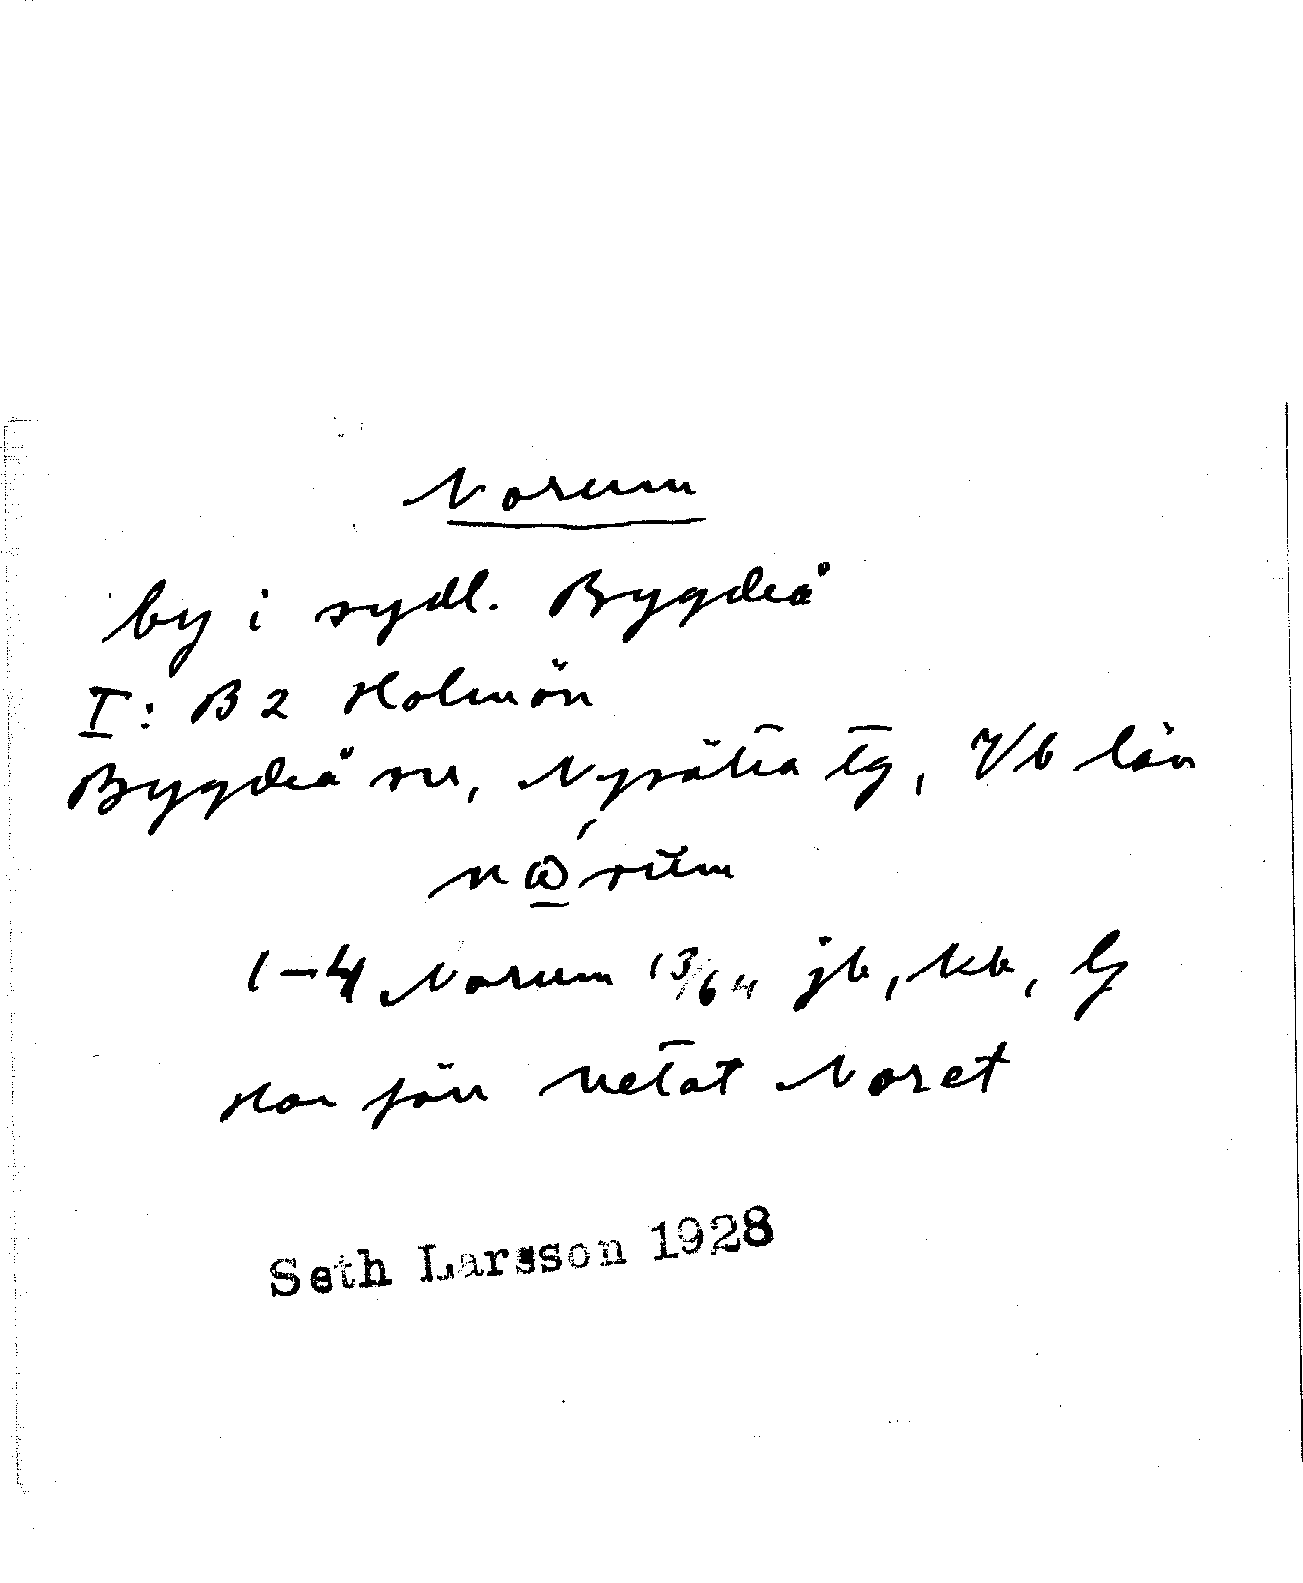 Norum
by i sydl. Bygdeå
I: B 2 Holmön
Bygdeå sn, Nysätra tg, Vb län
1-4 Norum 13/64 jb, kb, lj
Har förr hetat Noret
Seth Larsson 1928